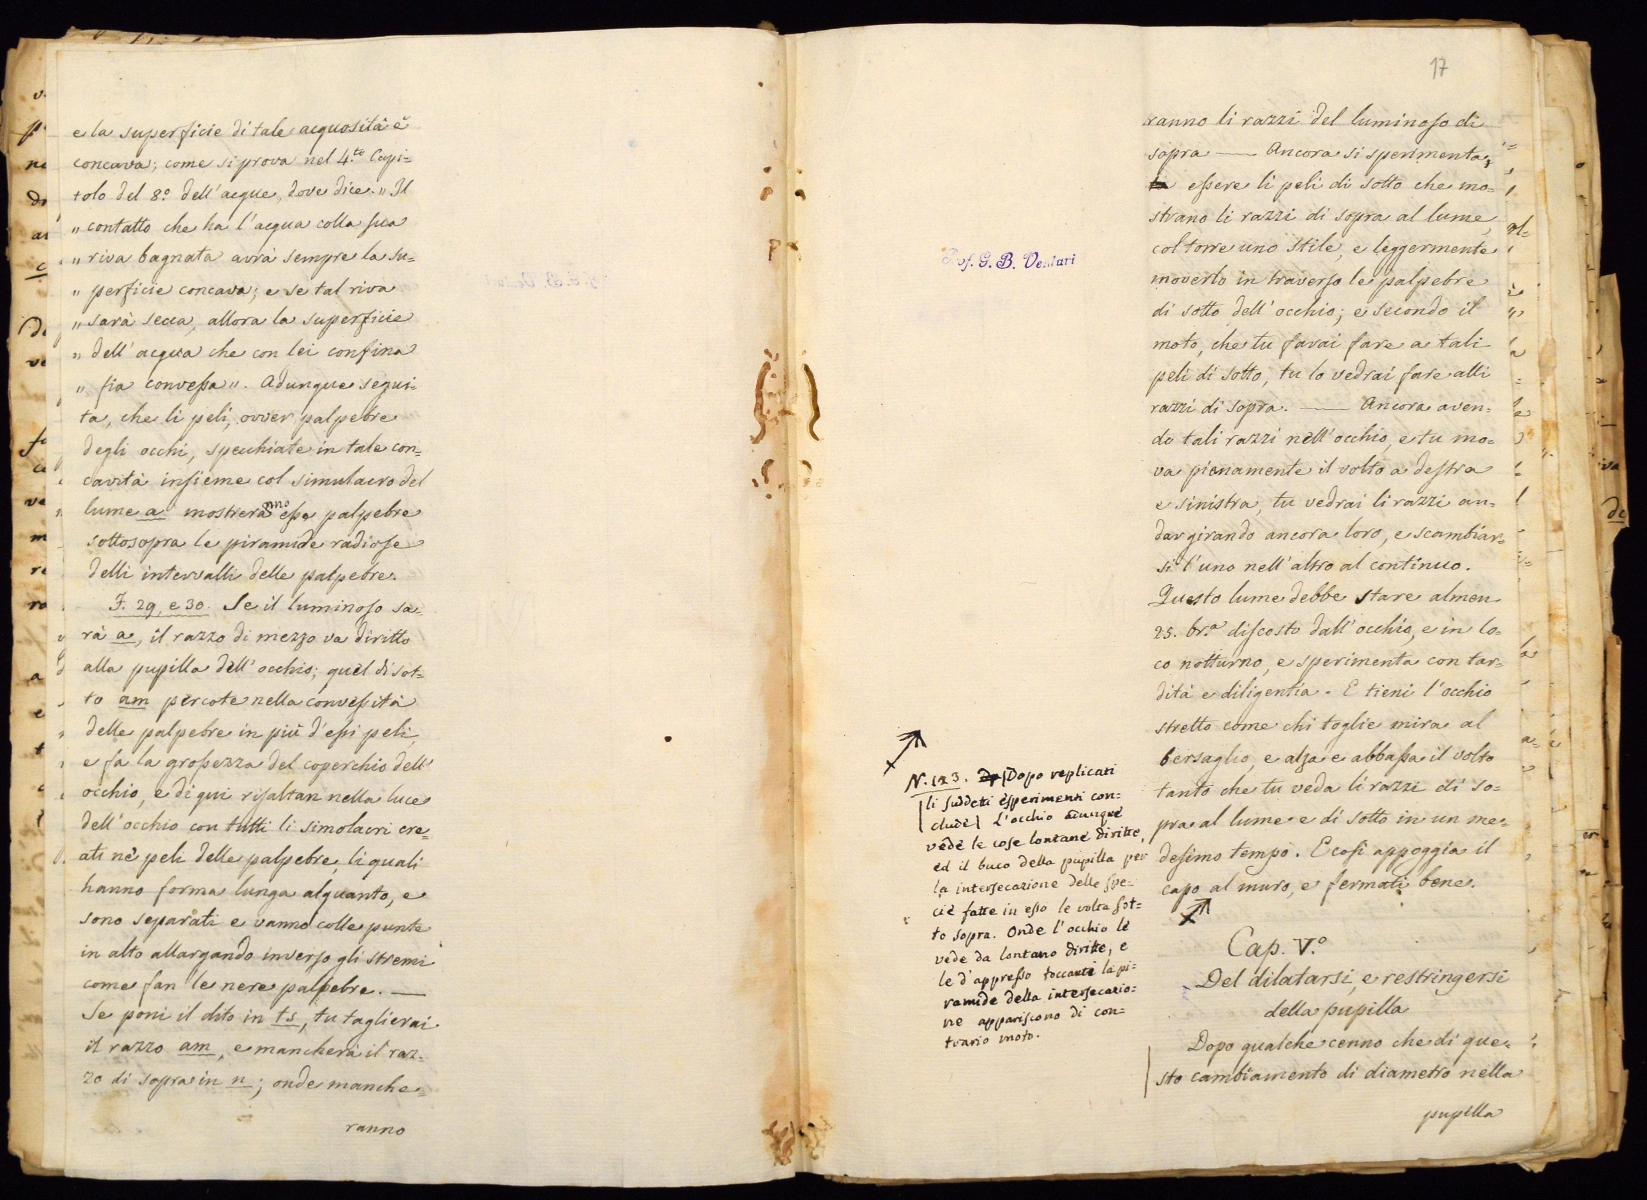 e la superficie di tale acquosità è
concava; come si prova nel 4.to Capi=
tolo del 8.o dell'acque, dove dice. „ Il
„ contatto che ha l'acqua colla sua
„ riva bagnata avrà sempre la su=
„ perficie concava; e se tal riva
„ sarà secca, allora la superficie
„ dell'acqua che con lei confina
„ fia convessa „. Adunque segui-
ta, che li peli, ovver palpebre
degli occhi, specchiate in tale con=
cavità insieme col simulacro del
lume a mostreranno esse palpebre
sottosopra le piramide radiose
delli intervalli delle palpebre.
F. 29, e 30. Se il luminoso sa=
rà a, il razzo di mezzo va diritto
alla pupilla dell'occhio; quel di sot=
to am percote nella convessità
delle palpebre in più d'essi peli,
e fa la grossezza del coperchio dell'
occhio, e di qui risaltan nella luce
dell'occhio con tutti li simolacri cre=
ati ne' peli delle palpebre, li quali
hanno forma lunga alquanto, e
sono separati e vanno colle punte
in alto allargando inverso gli stremi
come fan le nere palpebre. —
Se poni il dito in ts, tu taglierai
il razzo am, e mancherà il raz=
zo di sopra in n; onde manche=
ranno
17
ranno li razzi del luminoso di
sopra — Ancora si sperimenta,
essere li peli di sotto che mo=
strano li razzi di sopra al lume,
col torre uno stile, e leggermente
moverlo in traverso le palpebre
di sotto dell'occhio; e secondo il
moto, che tu farai fare a tali
peli di sotto, tu lo vedrai fare alli
razzi di sopra. — Ancora aven=
do tali razzi nell'occhio, e tu mo=
va pianamente il volto a destra
e sinistra, tu vedrai li razzi an=
dar girando ancora loro, e scambiar=
si l'uno nell'altro al continuo.
Questo lume debbe stare almen
25. br.a discosto dall'occhio, e in lo=
co notturno, e sperimenta con tar=
dità e diligentia. E tieni l'occhio
stretto come chi toglie mira al
bersaglio, e alza e abbassa il volto
tanto che tu veda li razzi di so=
pra al lume e di sotto in un me=
desimo tempo. E così appoggia il
capo al muro, e fermati bene.
Prof. G. B. Venturi
N. 123. Dopo replicati
li suddetti esperimenti con=
clude L'occhio adunque
vede le cose lontane diritte,
ed il buco della pupilla per
la intersecazione delle spe=
cie fatte in esso le volta sot=
to sopra. Onde l'occhio le
vede da lontano diritte, e
le d'appresso toccanti la pi=
ramide della intersecazio=
ne appariscono di con=
trario moto.
Cap. V.o
Del dilatarsi, e restringersi
della pupilla
Dopo qualche cenno che di que=
sto cambiamento di diametro nella
pupilla